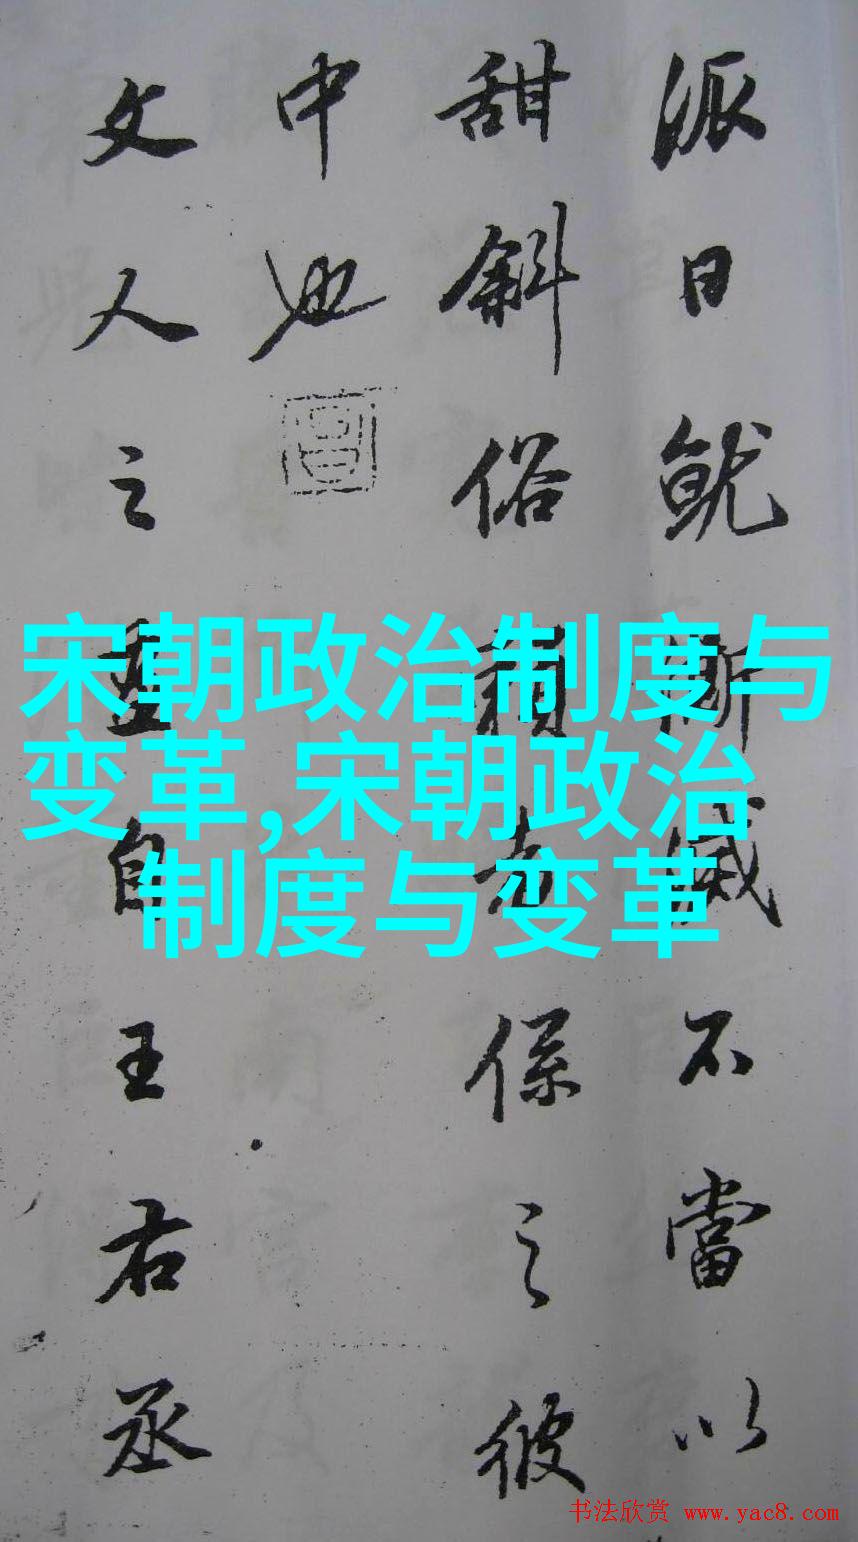 派日就澌滅不當以
甜斜俗賴者係之彼
中也
文人之畫自王右丞
宋朝政治制度与
变革,宋朝政治
制度与变革
书法欣赏 www.yac8.com